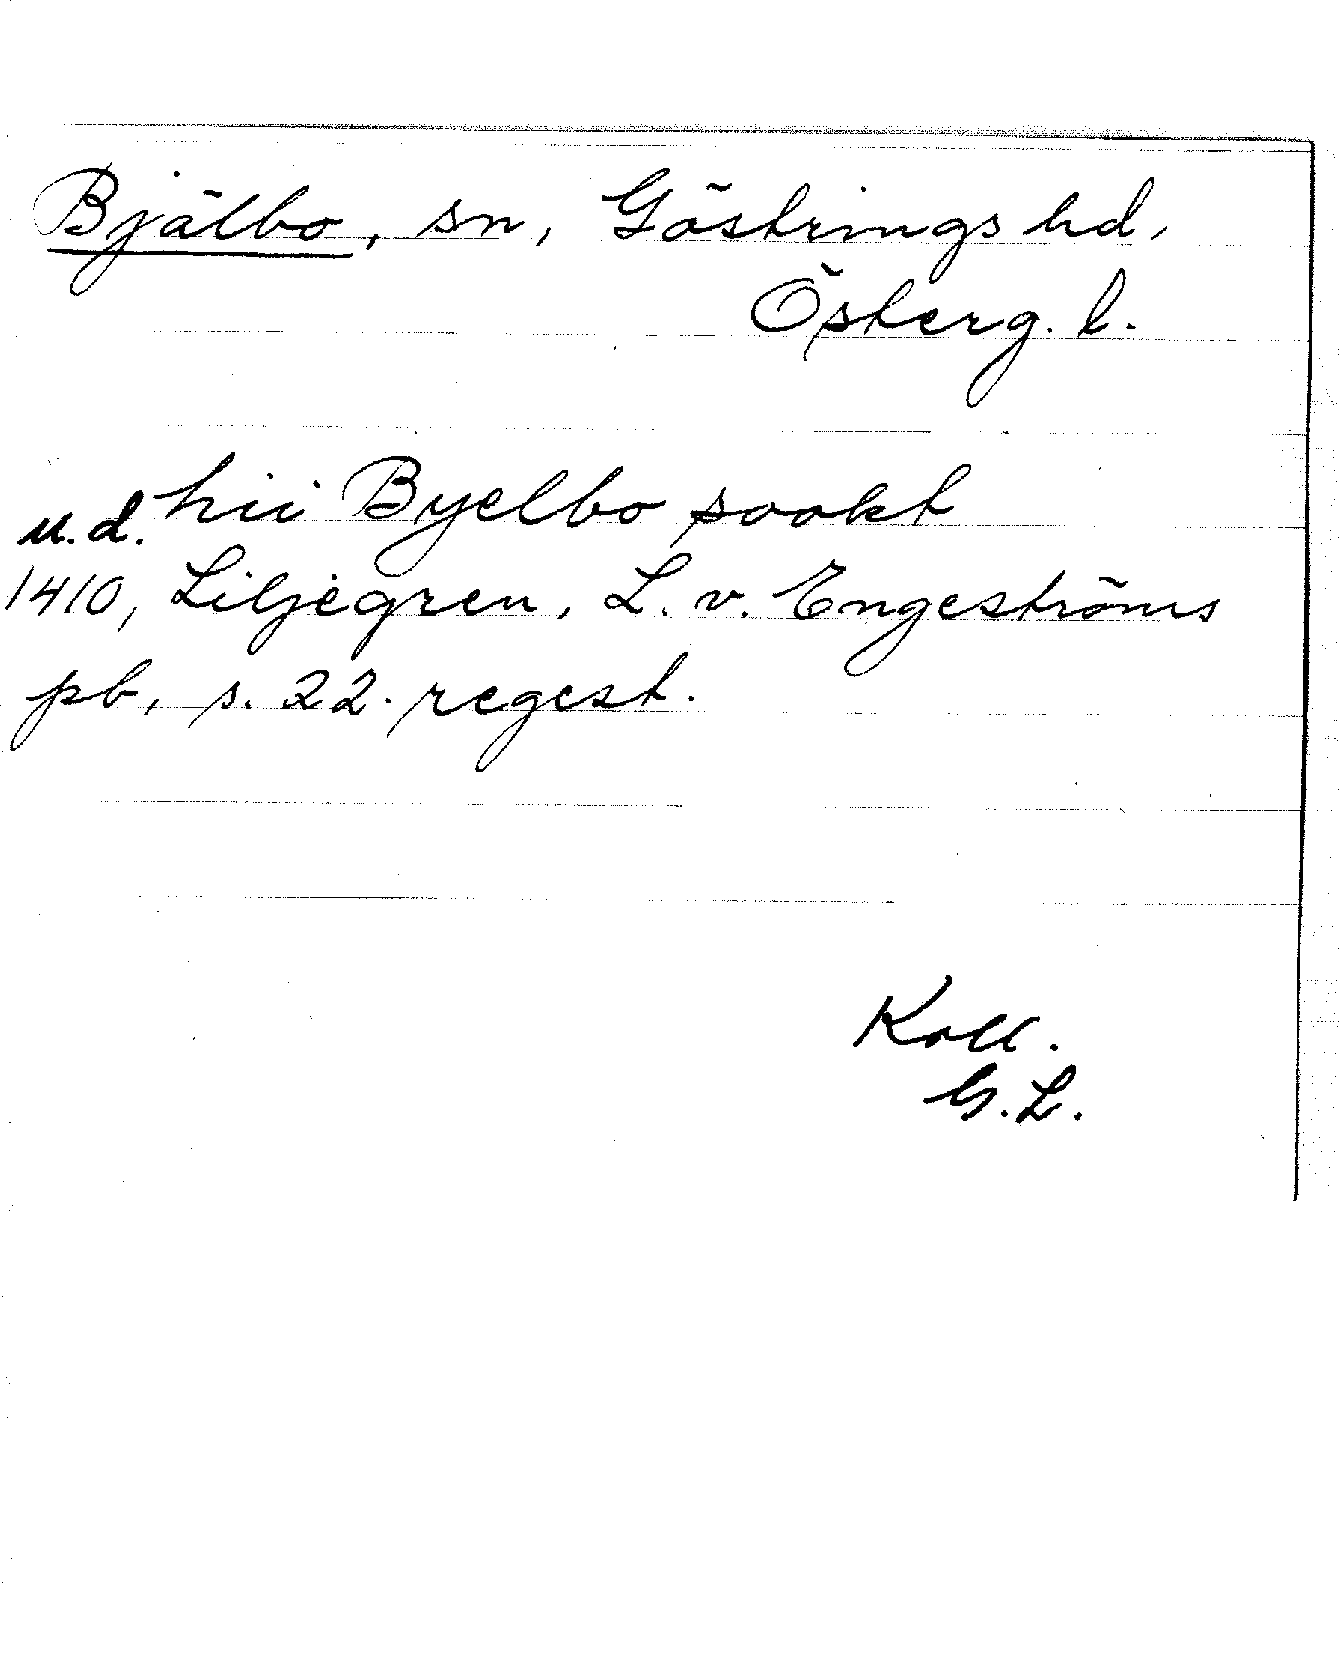 Bjälbo, sn, Göstrings hd,
Österg. l.
u.d. hii Byelbo sookt
1410, Liljegren, L. v. Engeströms
pb, s. 22. regest.
Koll.
G. L.